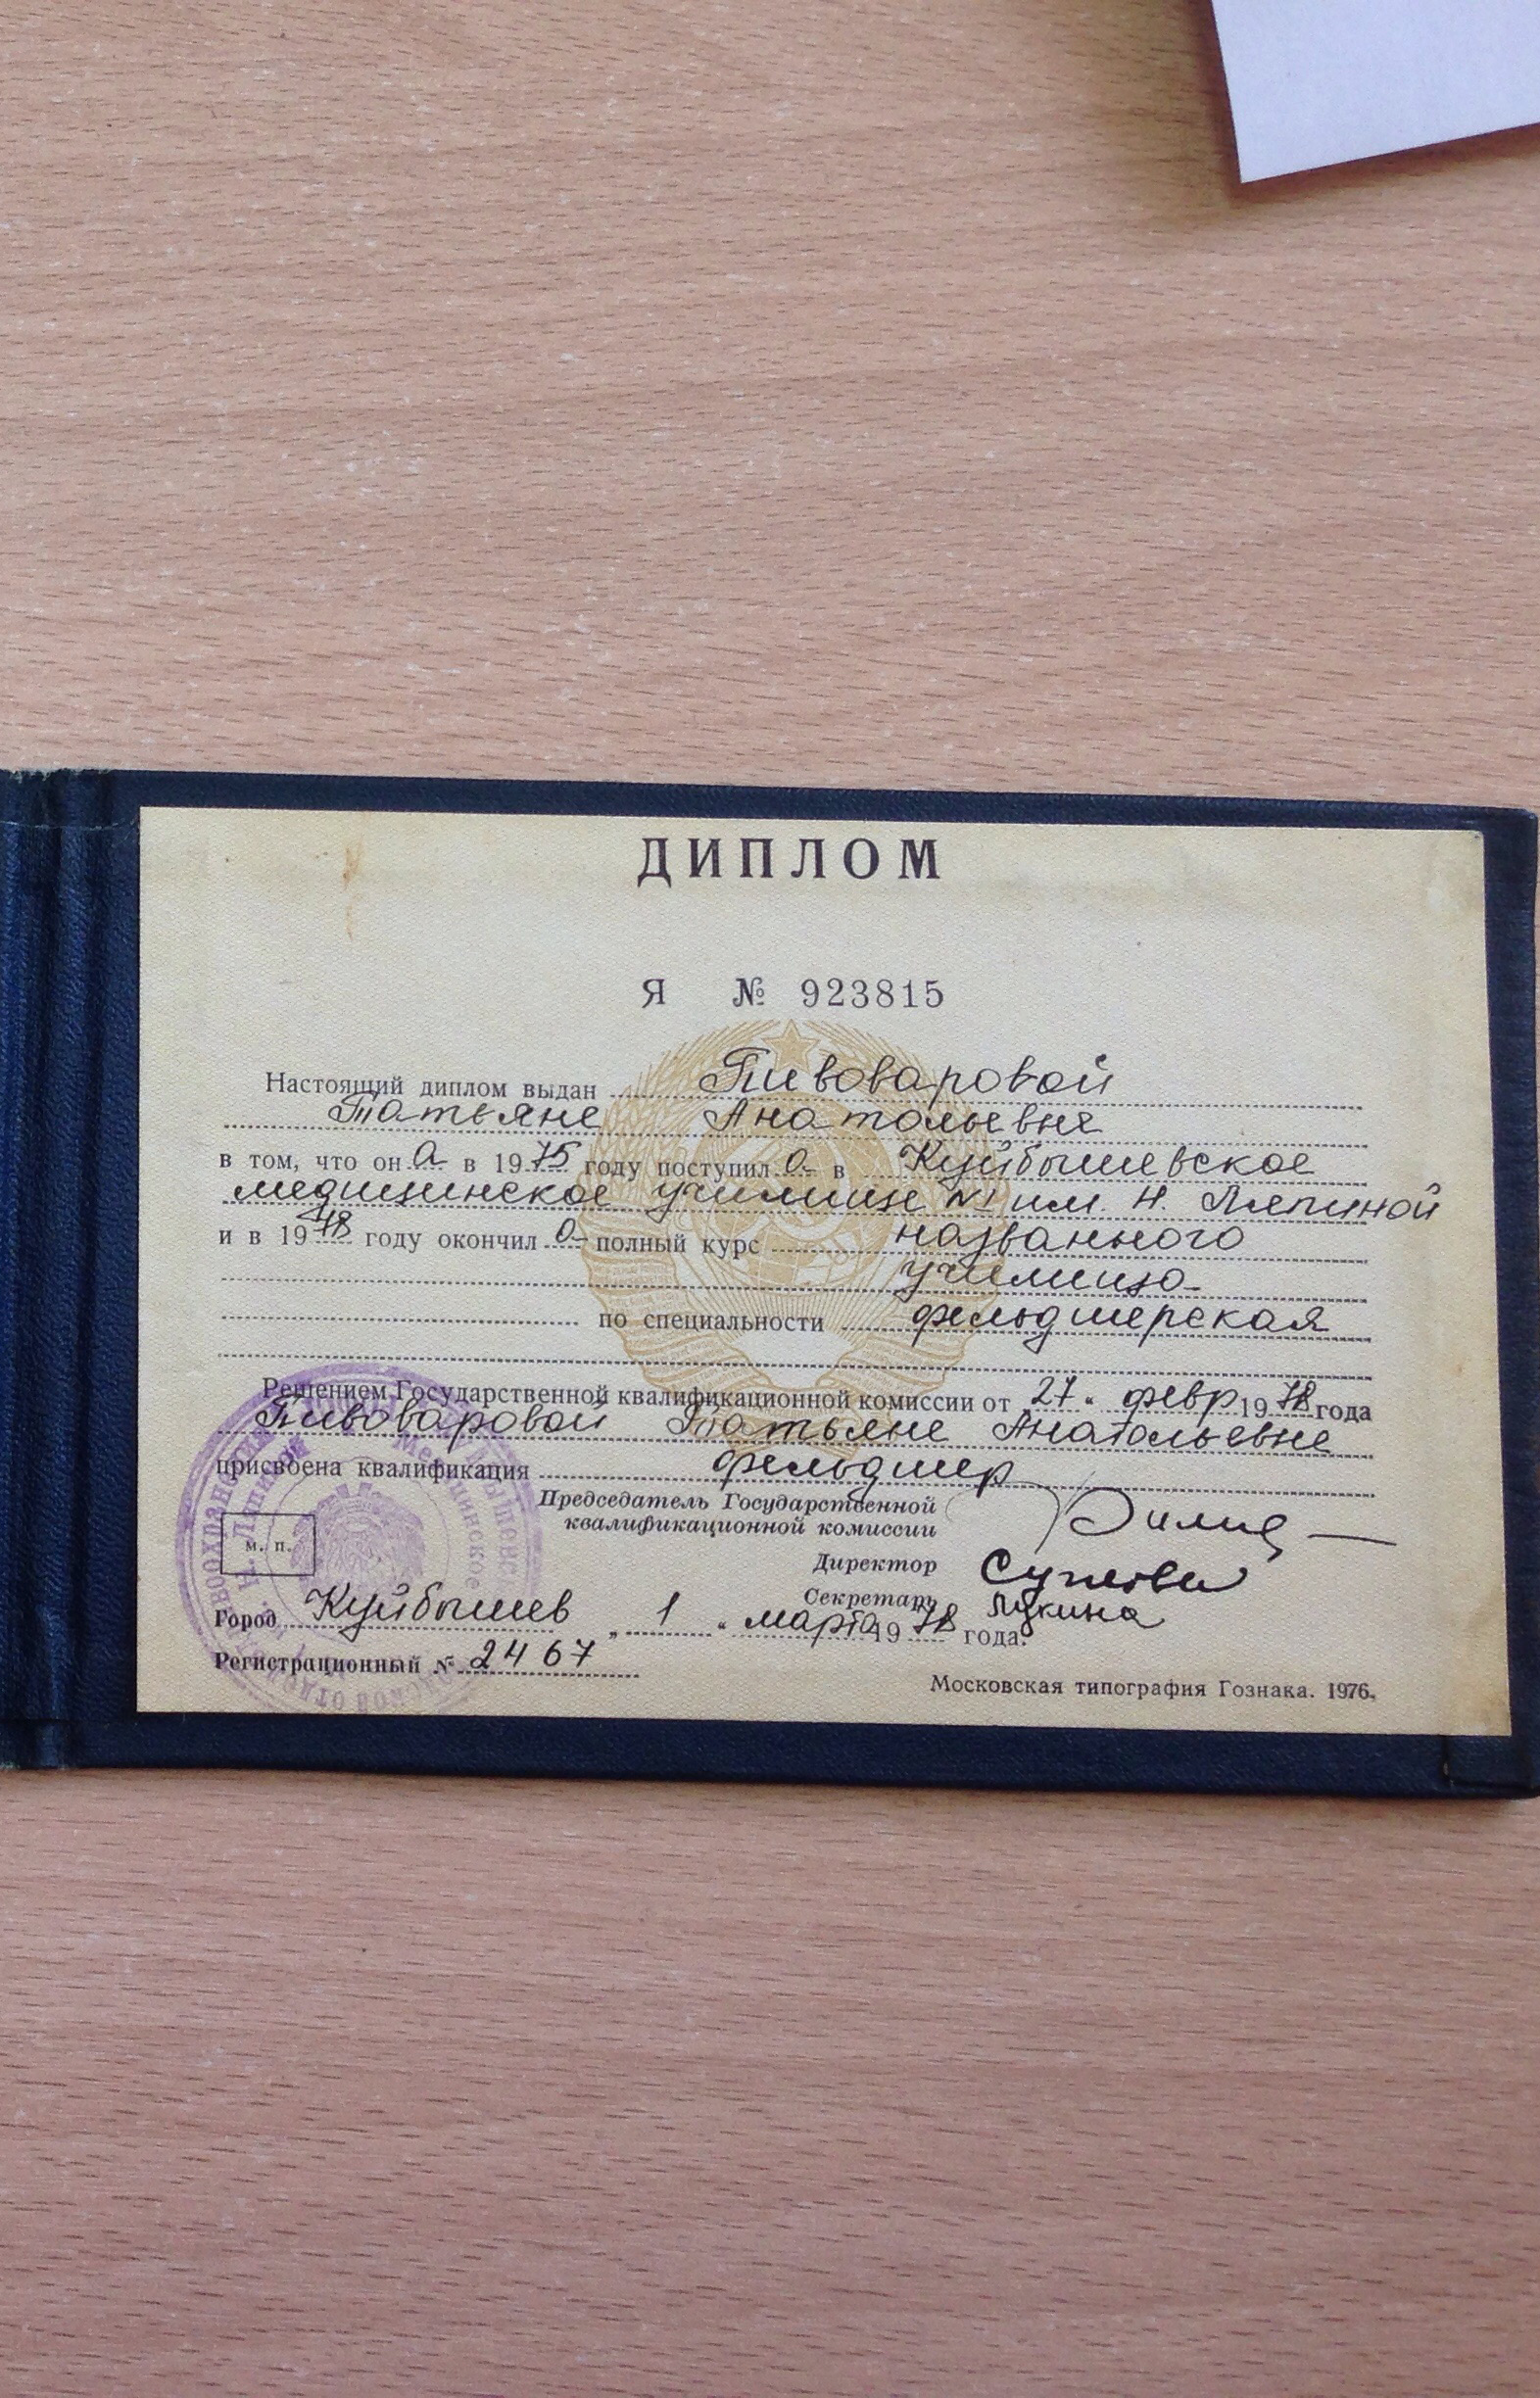 ДИПЛОМ
Я № 923815
Настоящий диплом выдан Пивоваровой
Татьяне Анатольевне
в том, что он а в 1975 году поступил а в Куйбышевское
медицинское училище №1 им. Н. Ляпиной
и в 1978 году окончил а полный курс названного
училища
по специальности фельдшерская
Решением Государственной квалификационной комиссии от „27“ февр 1978 года
Пивоваровой Татьяне Анатольевне
присвоена квалификация фельдшер
Председатель Государственной
квалификационной комиссии
Директор
Секретарь Лукина
м. п.
Город Куйбышев „1“ марта 1978 года.
Регистрационный № 2467
Московская типография Гознака. 1976.